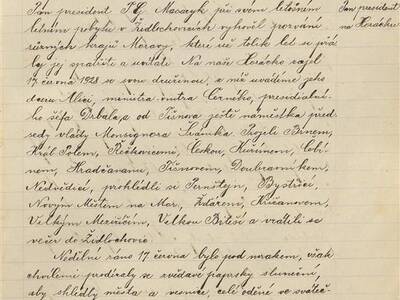 Pan president T. G. Masaryk při svém letošním
letním pobytu v Židlochovicích vyhověl pozvání
různých krajů Moravy, které už tolik let se přá-
ly jej spatřiti a uvítati. Na naše Horácko zajel
17. června 1928 se svou družinou, z níž uvádíme jeho
dceru Alici, ministra vnitra Černého, presidiální-
ho šéfa Drbala, a od Tišnova ještě náměstka před-
sedy vlády Monsignora Šrámka. Projeli Brnem,
Král. Polem, Řečkovicemi, Českou, Kuřimem, Čebí-
nem, Hradčanami, Tišnovem, Doubravníkem,
Nedvědicí, prohlédli si Pernštejn, Bystřicí,
Novým Městem na Mor., Žďárem, Křižanovem,
Velkým Meziříčím, Velkou Bíteší a vrátili se
večer do Židlochovic.
Nedělní ráno 17. června bylo pod mrakem, však
chvílemi podíraly se zvědavé paprsky sluneční,
aby shlédly města a vesnice, celé oděné ve sváteč-
Pan president
na Horácku.